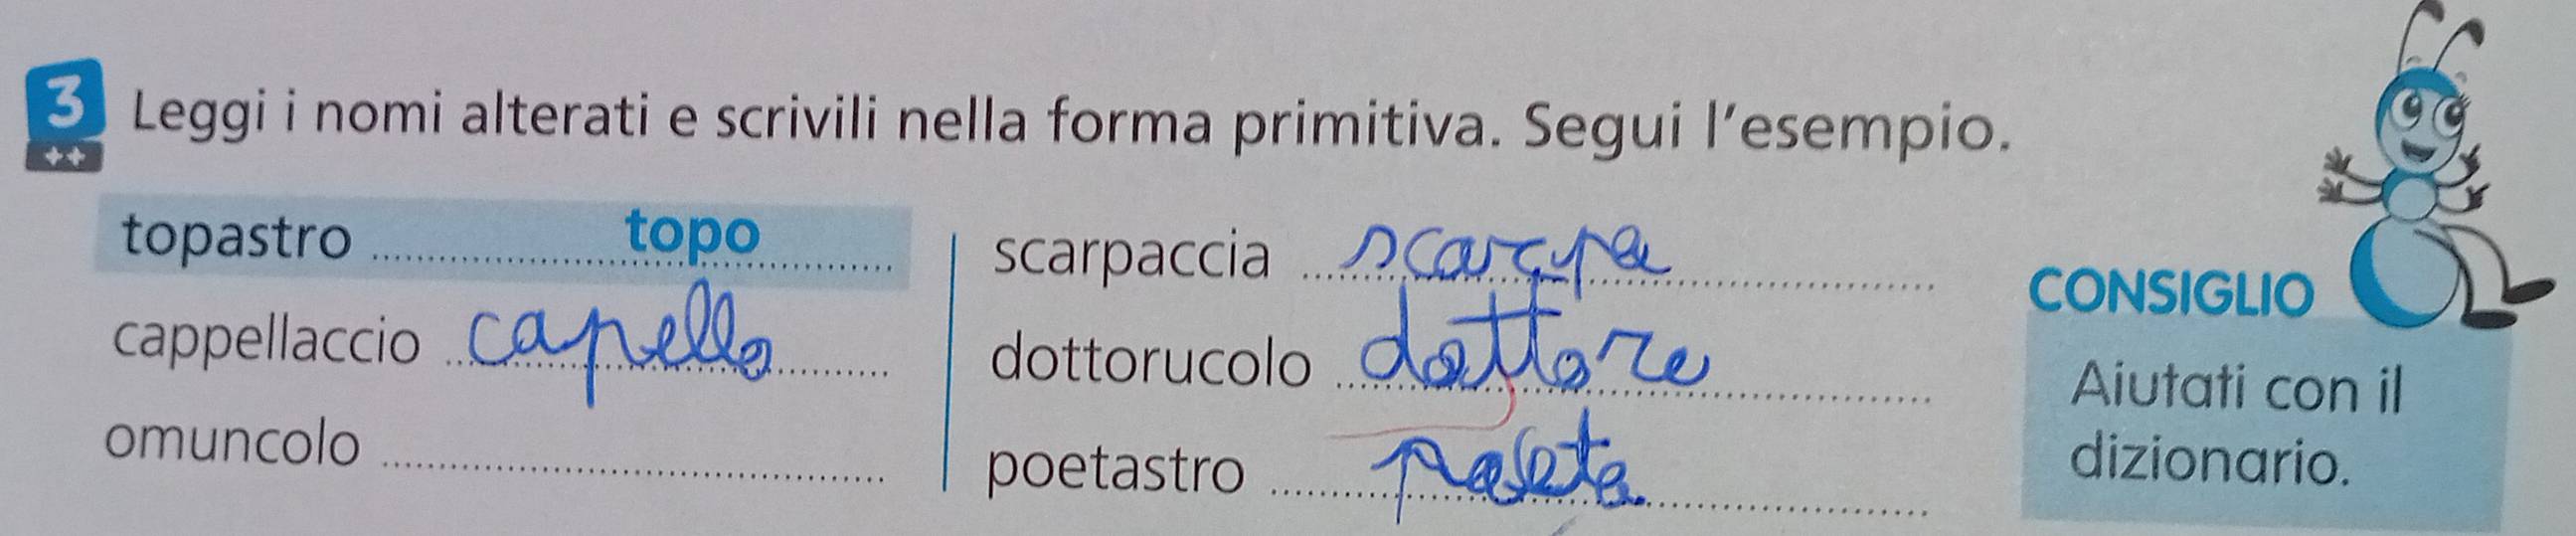 3 Leggi i nomi alterati e scrivili nella forma primitiva. Segui l'esempio.
++
topastro topo
cappellaccio capello
omuncolo
scarpaccia scarpa
dottorucolo dottore
poetastro poeta
CONSIGLIO
Aiutati con il
dizionario.